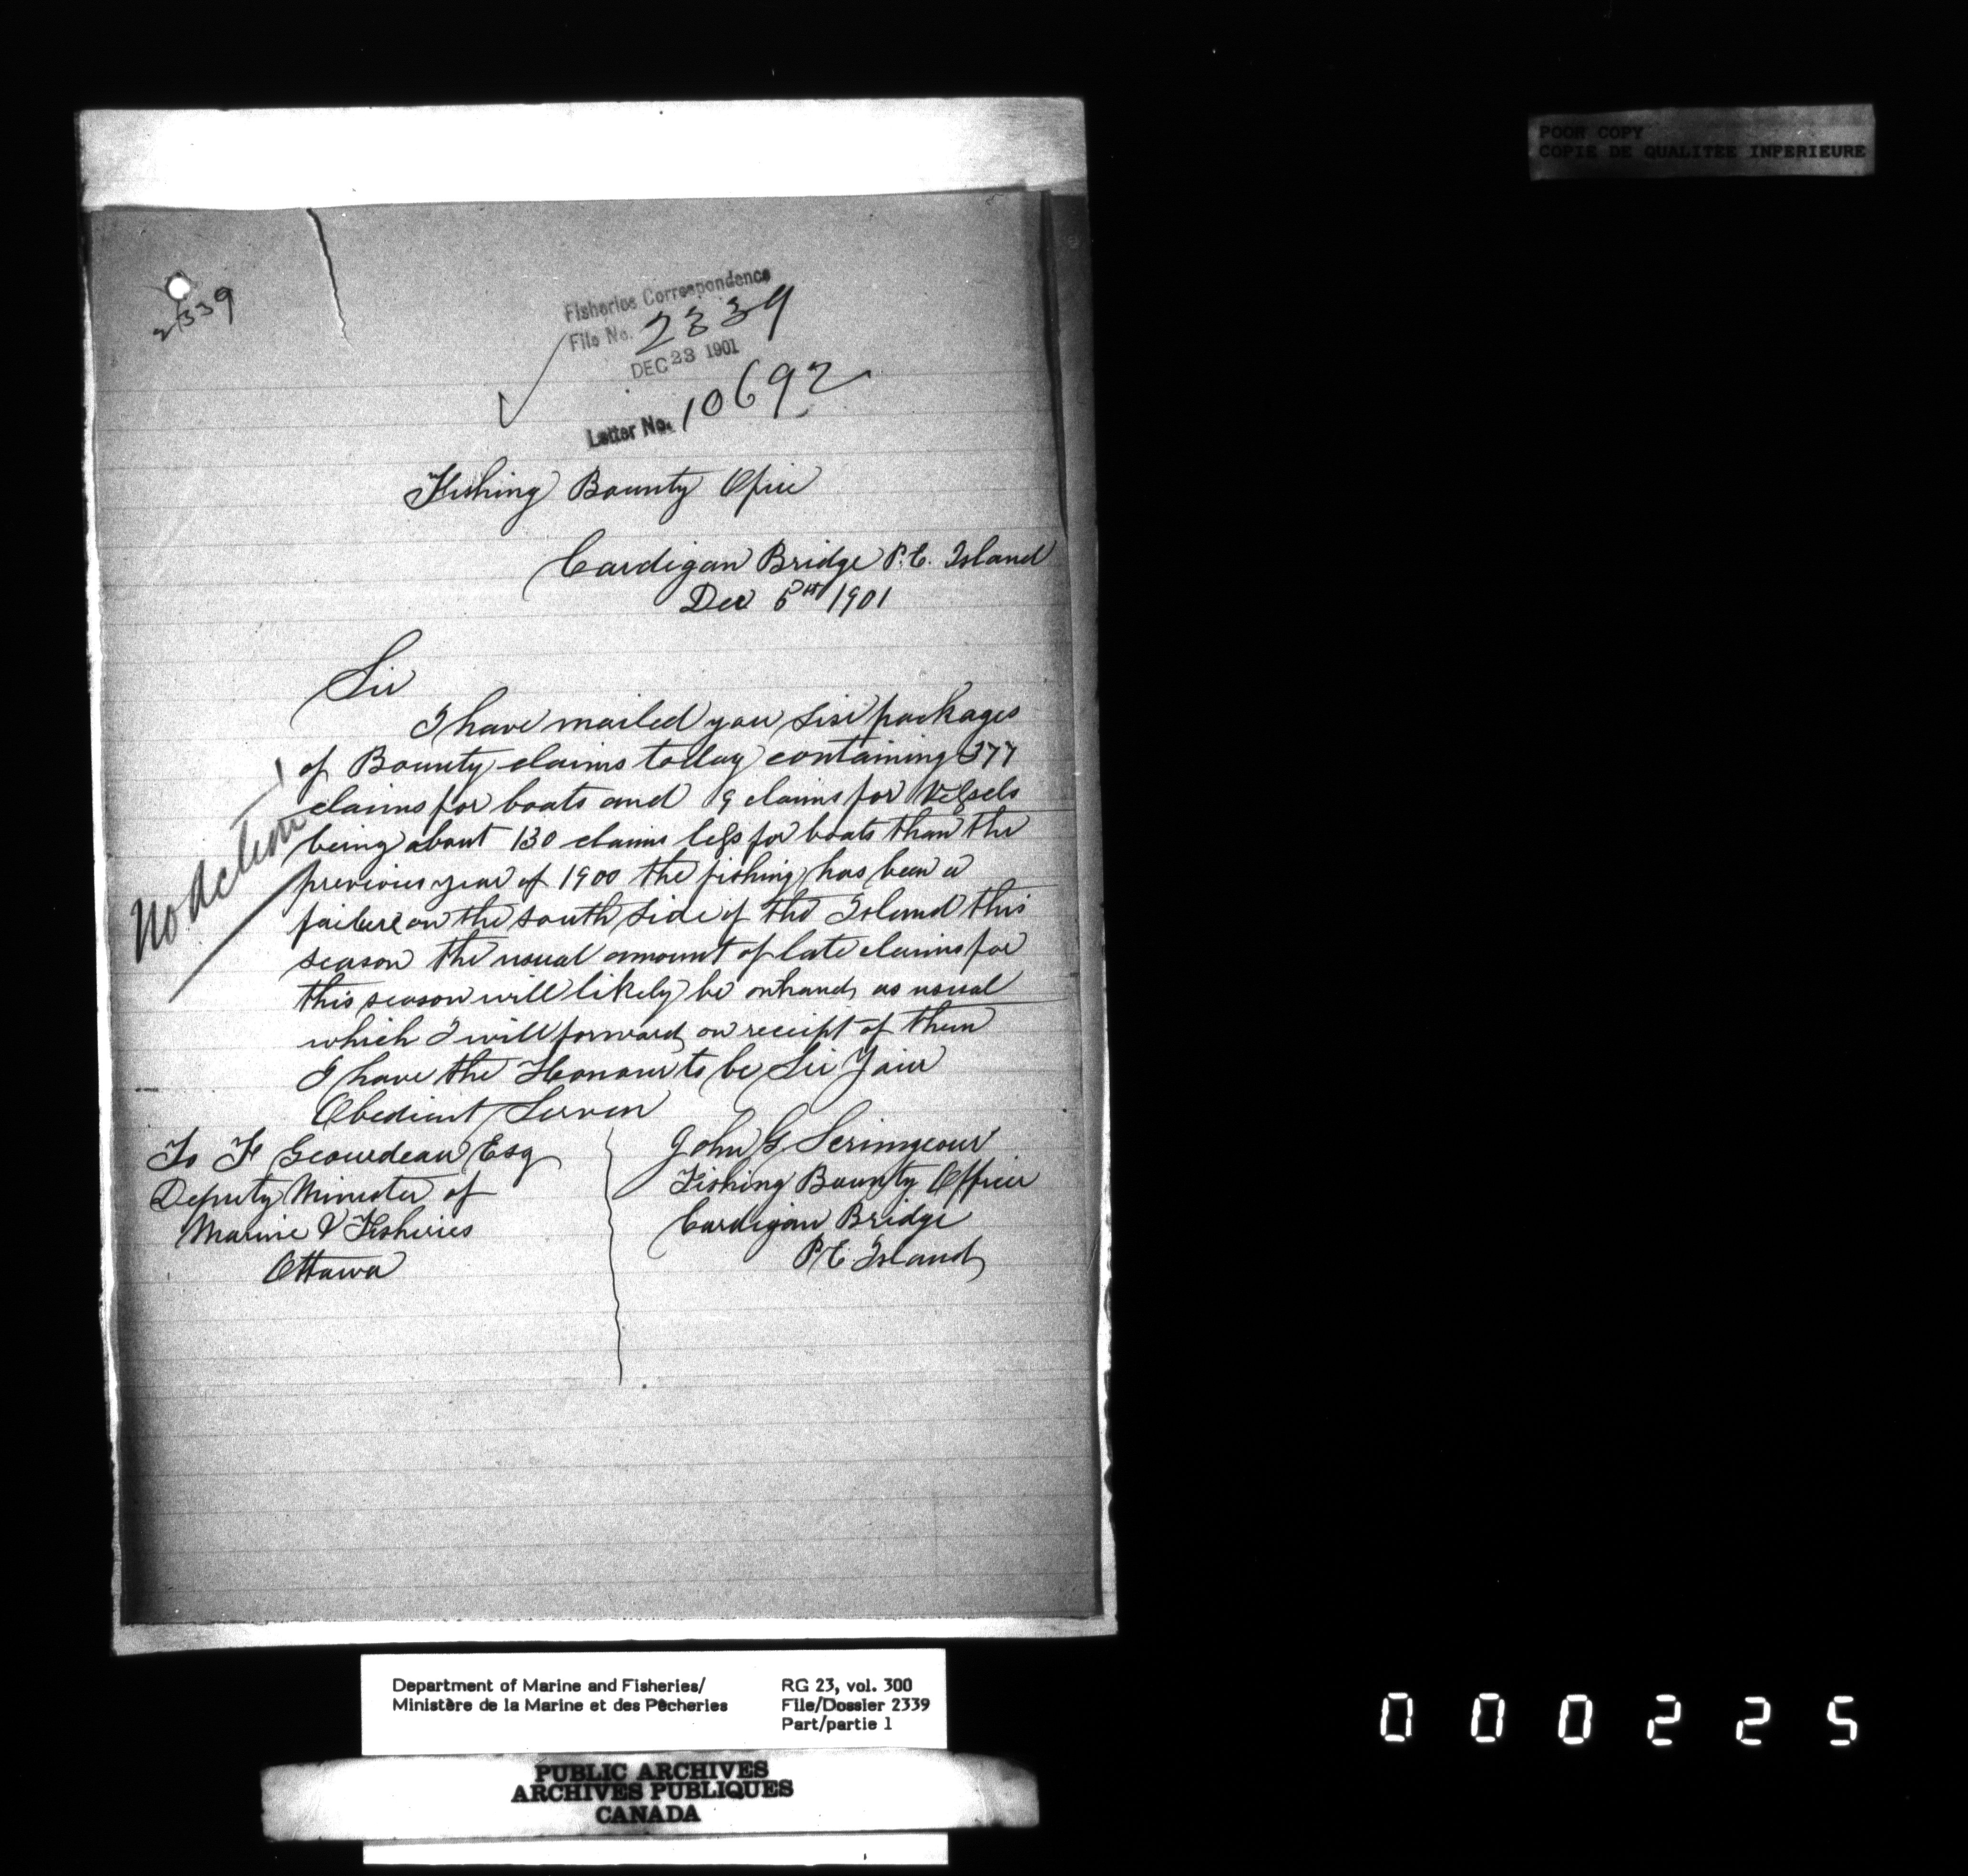 POOR COPY
COPIE DE QUALITEE INFERIEURE
2339
Fisheries Correspondence
File No. 2339
DEC 23 1901
Letter No. 10692
Fishing Bounty Ofice
Cardigan Bridge P.E. Island
Dec 5th 1901
Sir
I have mailed you Six packages
of Bounty claims today containing 377
claims for boats and 9 claims for Vessels
being about 130 claims less for boats than the
previous year of 1900 the fishing has been a
failure on the south side of the Island this
season the usual amount of late claims for
this season will likely be on hand as usual
which I will forward on receipt of them
I have the Honour to be Sir Your
Obedient Servan
No Action
To F Gourdeau Esq
Deputy Minister of
Marine & Fisheries
Ottawa
John G Scrimgeour
Fishing Bounty Officer
Cardigan Bridge
P.E. Island
Department of Marine and Fisheries/
Ministère de la Marine et des Pêcheries
RG 23, vol. 300
File/Dossier 2339
Part/partie 1
PUBLIC ARCHIVES
ARCHIVES PUBLIQUES
CANADA
000225